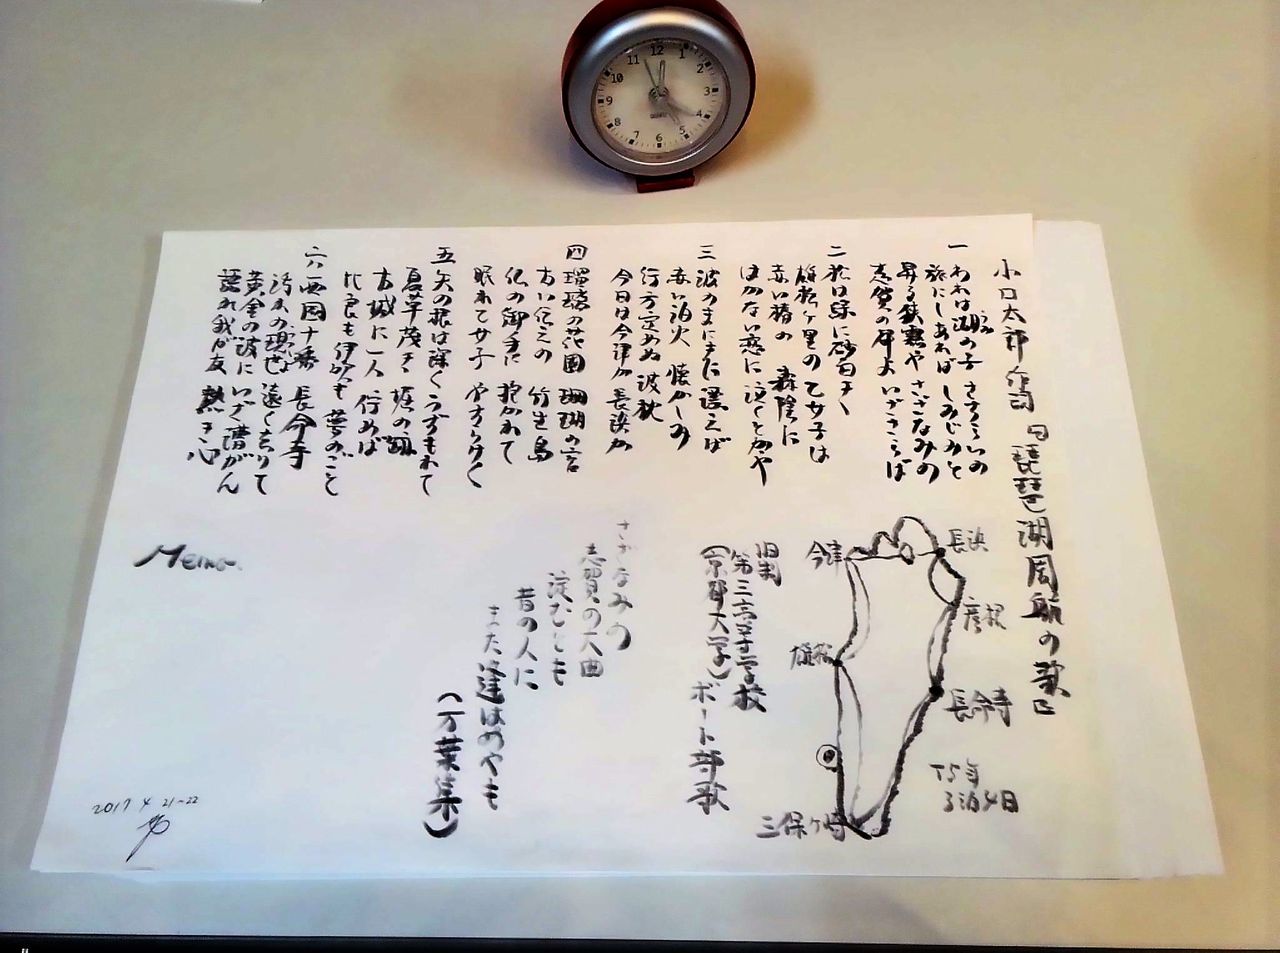 小口太郎 作詞 『琵琶湖周航の歌』
一 われは湖の子 さすらいの
うみ
旅にしあれば しみじみと
昇る狭霧や さざなみの
志賀の都よ いざさらば
二 松は緑に 砂白き
雄松ヶ里の 乙女子は
赤い椿の 森陰に
はかない恋に 泣くとかや
三 波のまにまに 漂えば
赤い泊火 懐かしみ
行方定めぬ 波枕
今日は今津か 長浜か
四 瑠璃の花園 珊瑚の宮
古い伝えの 竹生島
仏の御手に 抱かれて
眠れ乙女子 やすらけく
五 矢の根は 深くうずもれて
夏草茂き 堀の跡
古城に一人 佇めば
比良も伊吹も 夢のごと
六 西国十番 長命寺
汚れの現世 遠く去りて
黄金の波に いざ漕がん
語れ我が友 熱き心
長浜
今津
彦根
雄松
長命寺
三保ヶ崎
T5年
3泊4日
旧制
第三高等学校
(京都大学) ボート部歌
さざなみの
志賀の大曲
淀むとも
昔の人に
また逢はめやも
(万葉集)
Memo.
2017 4 21~22